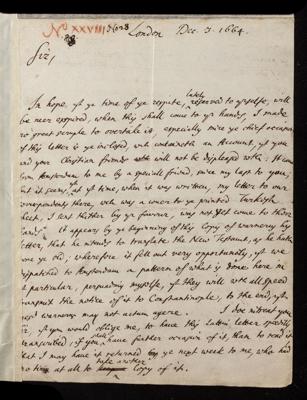 No XXVIII
London Dec. 3. 1664.
Sir,
In hope yt ye time of ye respite, lately reserved to yrselfe, will
be neer expired, when this shall come to yr hands, I made
no great scruple to overtake it, especially since ye chief occasion
of this letter is ye inclosed, wch containeth an Account, yt you
and your Christian friends will not be displeased with. It came
from Amsterdam to me by a speciall friend, since my last to you;
but it seems, yt at yt time, when it was written, my letter to our
correspondents there, wch was a cover to ye printed Turkish
sheet, I sent thither by yr favour, was not yet come to those
hands. It appears by ye beginning of this Copy of Warners
letter, that he intends to translate the New Testament, as he hath
done ye old; wherefore it fell out very opportunely, yt we
dispatched to Amsterdam a pattern of what is done here in
yt particular, perswading myselfe, yt they will wth all speed
transmit the notice of it to Constantinople, to the end, yt
Warners may not actum agere. I doe intreat you,
Sir, if you would oblige me, to have this Lattin letter speedily
transcribed, if you shall have further occasion of it, than to read it
that I may have it returned by ye next week to me, who had
no time at all to take another Copy of it.